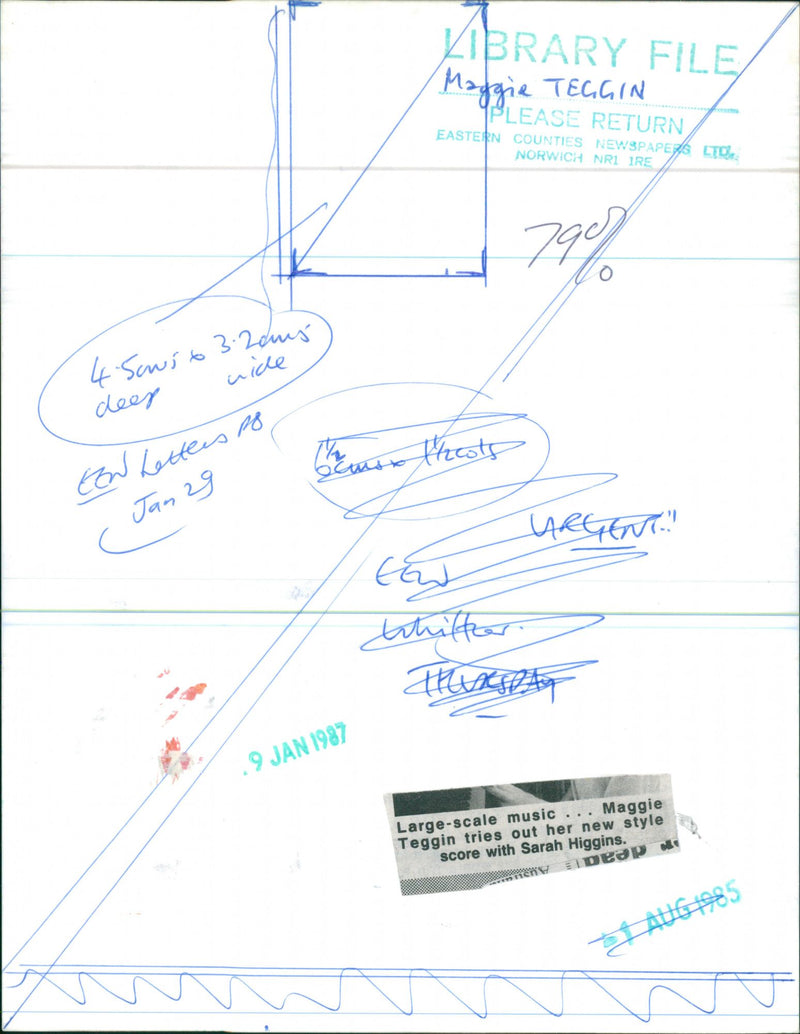 LIBRARY FILE
Maggie TEGGIN
PLEASE RETURN
EASTERN COUNTIES NEWSPAPERS LTD.
NORWICH NR1 1RE
4.5cms x 3.2cms
deep wide
EEN Letters P8
Jan 29
1½
6cms x 1½cols
URGENT!!
EEN
THURSDAY
9 JAN 1987
Large-scale music . . . Maggie
Teggin tries out her new style
score with Sarah Higgins.
1 AUG 1985